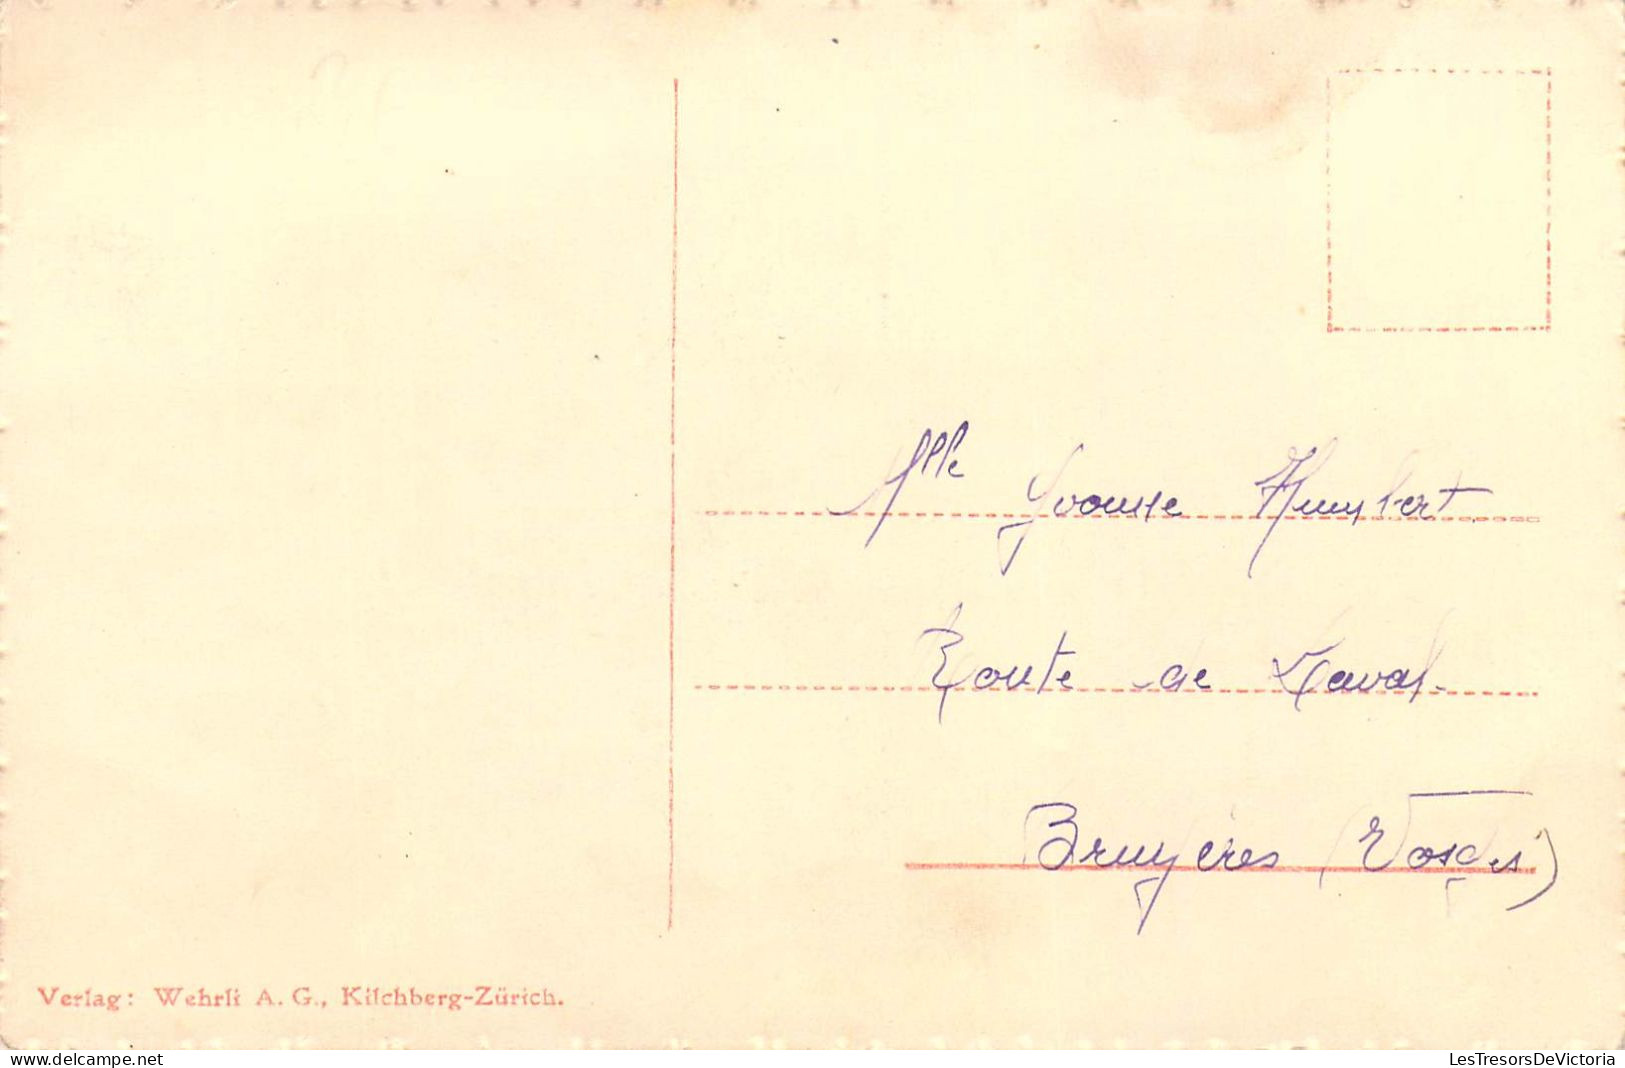 Mlle Yvonne Humbert
Route de Laval
Bruyères (Vosges)
Verlag: Wehrli A. G., Kilchberg-Zürich.
www.delcampe.net
LesTresorsDeVictoria